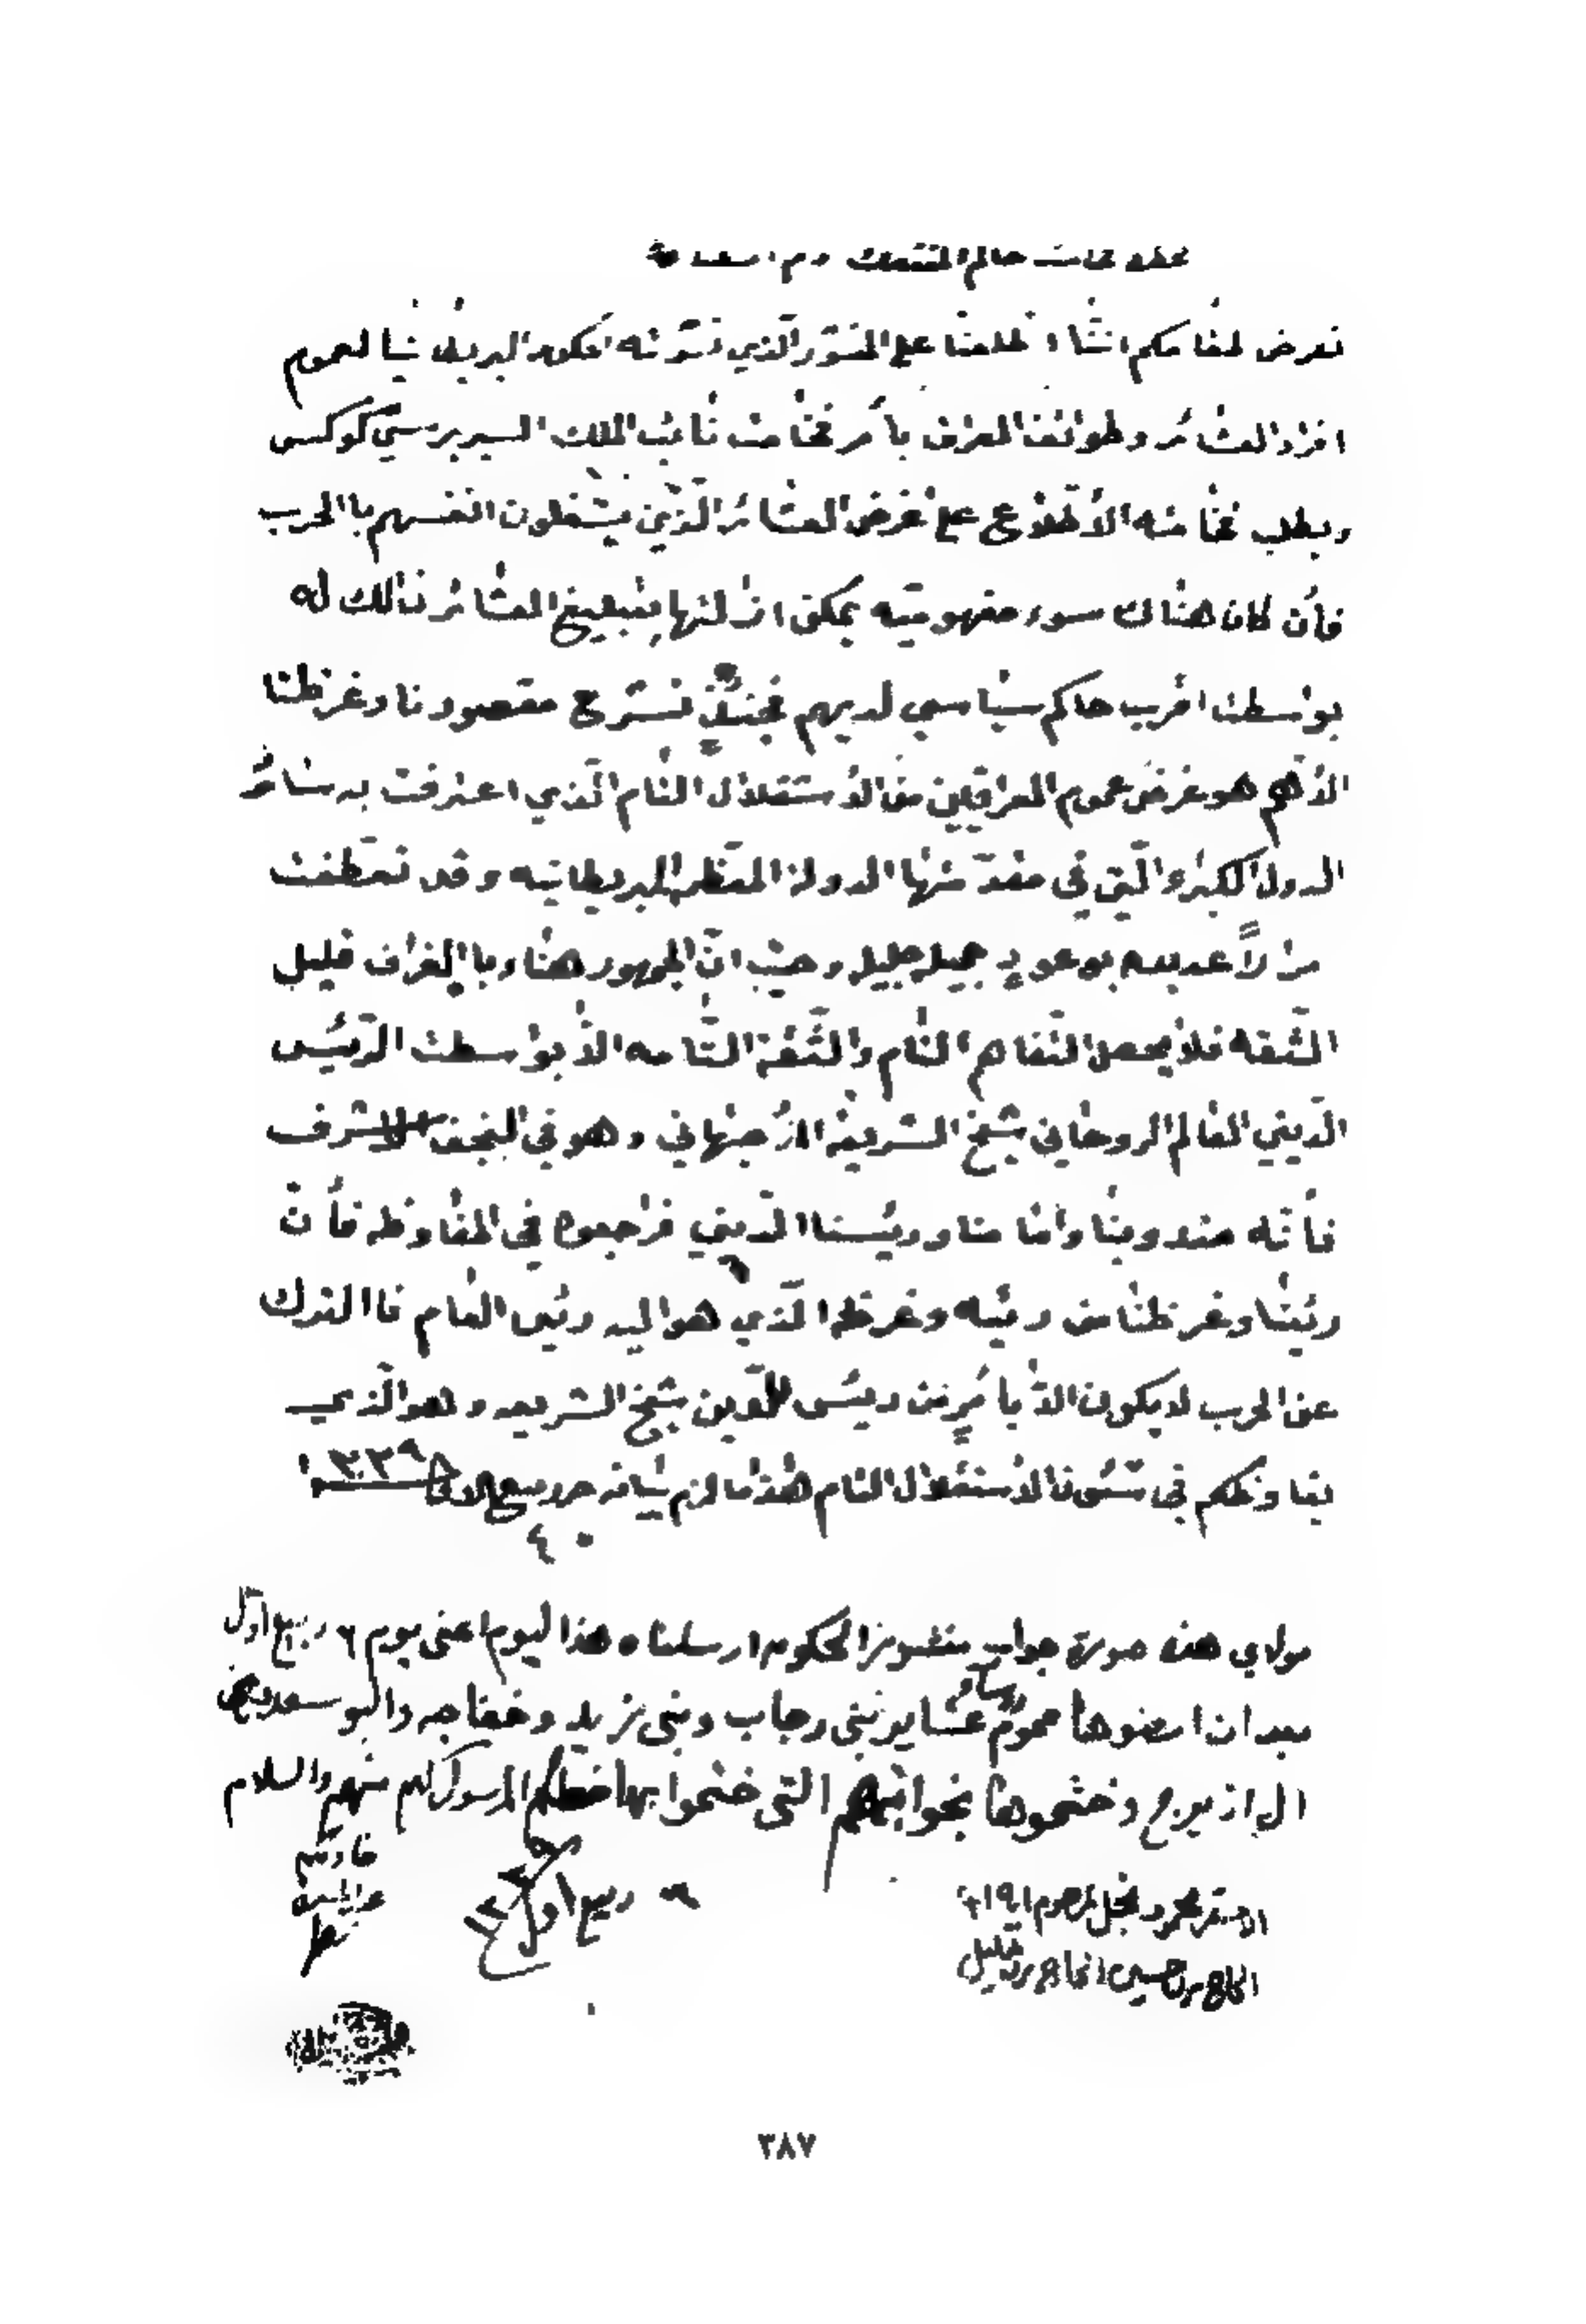 حاكم المنتفك دام
نعرض لمقامكم انّنا اطلعنا على المنشور الّذي نشرته الحكومه البريطانيا لعموم
افراد العشائر وطوائف العراق بأمر فخامت نائب الملك السير برسي كوكس
ويطلب فخامته الأطلاع على غرض العشائر الّذين يشغلون انفسهم باالحرب
فأن كان هناك سوء مفهوميّه يمكن ازالتها بتبليغ العشائر ذالك له
بواسطت اقرب حاكم سياسي لديهم فحينئذٍ نشرح مقصودنا وغرظنا
الأهم هو غرض عموم العراقيين من الأستقلال التام الّذي اعترفت به سائر
الدول الكبرى والّتي في مقدّمتها الدولة المعظمة البريطانيّه وقد تعطفت
مراراً عديده بوعودٍ جميله جليله وحيث انّ الجمهور هنا وباالغراف قليل
الثّقه فلا يحصل التفاهم التام والثّقة التّامه الأ بواسطت الرّئيس
الدّيني العالم الروحاني شيخ الشريعة الأصبهاني وهو في النجف الاشرف
فأنّه مندوبنا وامامنا ورئيسنا الدّيني فراجعوه في المفاوظه فأن
رئينا وغرظنا من رئيه وغرظه الّذي هو اليه رئيس العام فاالترك
عن الحرب لا يكون الاّ بأمرٍ من رئيس الدّين شيخ الشريعه وهو الّذي
يفاوظكم في شئوننا لأستقلال التام هذا ما لزم بيانه حرر ربيع الاول ١٣٣٩
٤
مولاي هذه صورة جواب منشور الحكومه ارسلناه هذا اليوم اعني يوم ٦ ربيع اول
بعد ان امضوها عموم رؤساء عشاير بني رجاب وبني زيد وخفاجه والبو سعد يعني
ال ازيرج وختموها بخواتيهم التي ختموا بها لكم منهم والسلام
٩ ربيع اول
٣٨٧